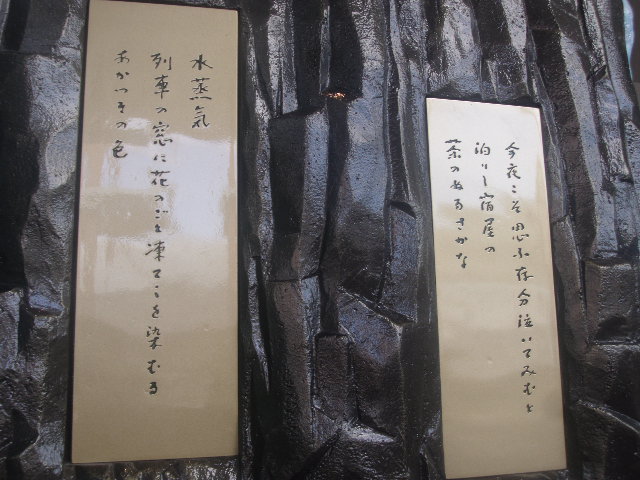 今夜こそ思ふ存分泣いてみむと
泊りし宿屋の
茶のぬるさかな
水蒸氣
列車の窓に花のごと凍てしを染むる
あかつきの色